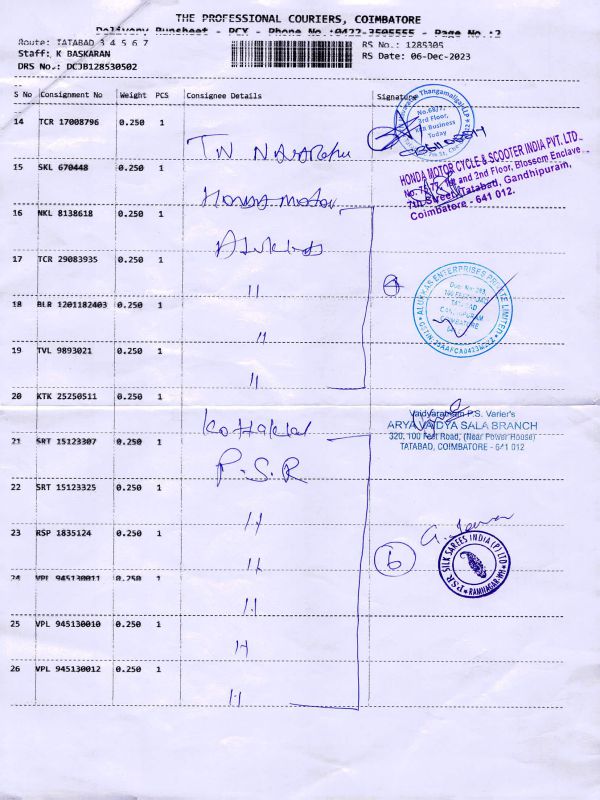 THE PROFESSIONAL COURIERS, COIMBATORE
Delivery Runsheet - PCX - Phone No.:0422-3505555 - Page No.:2
Route: TATABAD 3 4 5 6 7
Staff: K BASKARAN
DRS No.: DCJB128530502
RS No.: 1285305
RS Date: 06-Dec-2023
S No Consignment No Weight PCS Consignee Details Signature
14 TCR 17008796 0.250 1
No.68/7,
3rd Floor,
Business
Today
15 SKL 670448 0.250 1
HONDA MOTOR CYCLE & SCOOTER INDIA PVT. LTD.
and 2nd Floor, Blossom Enclave
7th Street, Tatabad, Gandhipuram,
Coimbatore - 641 012.
Honda Motor
16 NKL 8138618 0.250 1
17 TCR 29083935 0.250 1
"
ALUKKAS ENTERPRISES PRIVATE LIMITED
TATABAD
COIMBATORE
18 BLR 1201182403 0.250 1
"
19 TVL 9893021 0.250 1
"
20 KTK 25250511 0.250 1
Kottakkal
Vaidyaratnam P.S. Varier's
ARYA VAIDYA SALA BRANCH
320, 100 Feet Road, (Near Power House)
TATABAD, COIMBATORE - 641 012
21 SRT 15123307 0.250 1
P.S.R
22 SRT 15123325 0.250 1
"
23 RSP 1835124 0.250 1
"
6
PSR SILK SAREES INDIA (P) LTD
24 VPL 945130011 0.250 1
"
25 VPL 945130010 0.250 1
"
26 VPL 945130012 0.250 1
"